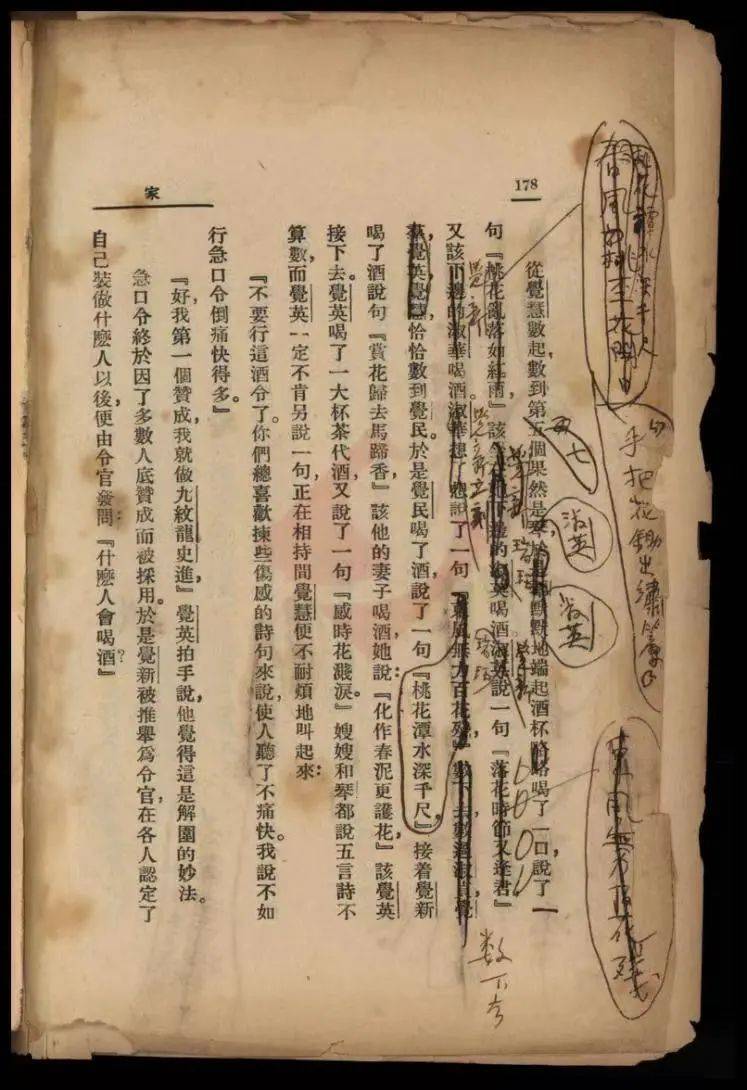 178
家
從覺慧數起,數到第五個果然是琴,於是琴默默地端起酒杯略略喝了一口,說了一
句『桃花亂落如紅雨』該
喝酒
說一句『落花時節又逢君』
又該下邊的淑華喝酒,淑華想了想,說了一句『東風無力百花殘』數下去,數過淑貞,覺
羣,覺英,覺慧,恰恰數到覺民。於是覺民喝了酒,說了一句『桃花潭水深千尺』接着覺新
喝了酒說句『賞花歸去馬蹄香』該他的妻子喝酒,她說:『化作春泥更護花,』該覺英
接下去。覺英喝了一大杯茶代酒,又說了一句『感時花濺淚。』嫂嫂和琴都說五言詩不
算數,而覺英一定不肯另說一句,正在相持間,覺慧便不耐煩地叫起來:
『不要行這酒令了。你們總喜歡揀些傷感的詩句來說,使人聽了不痛快。我說不如
行急口令倒痛快得多。』
『好,我第一個贊成,我就做九紋龍史進,』覺英拍手說,他覺得這是解圍的妙法。
急口令終於因了多數人底贊成而被採用。於是覺新被推舉爲令官,在各人認定了
自己裝做什麽人以後,便由令官發問:『什麽人會喝酒?』
桃花潭水深千尺
手把花鋤出繡簾
東風無力百花殘
淑英
數下去
覺新
瑞珏